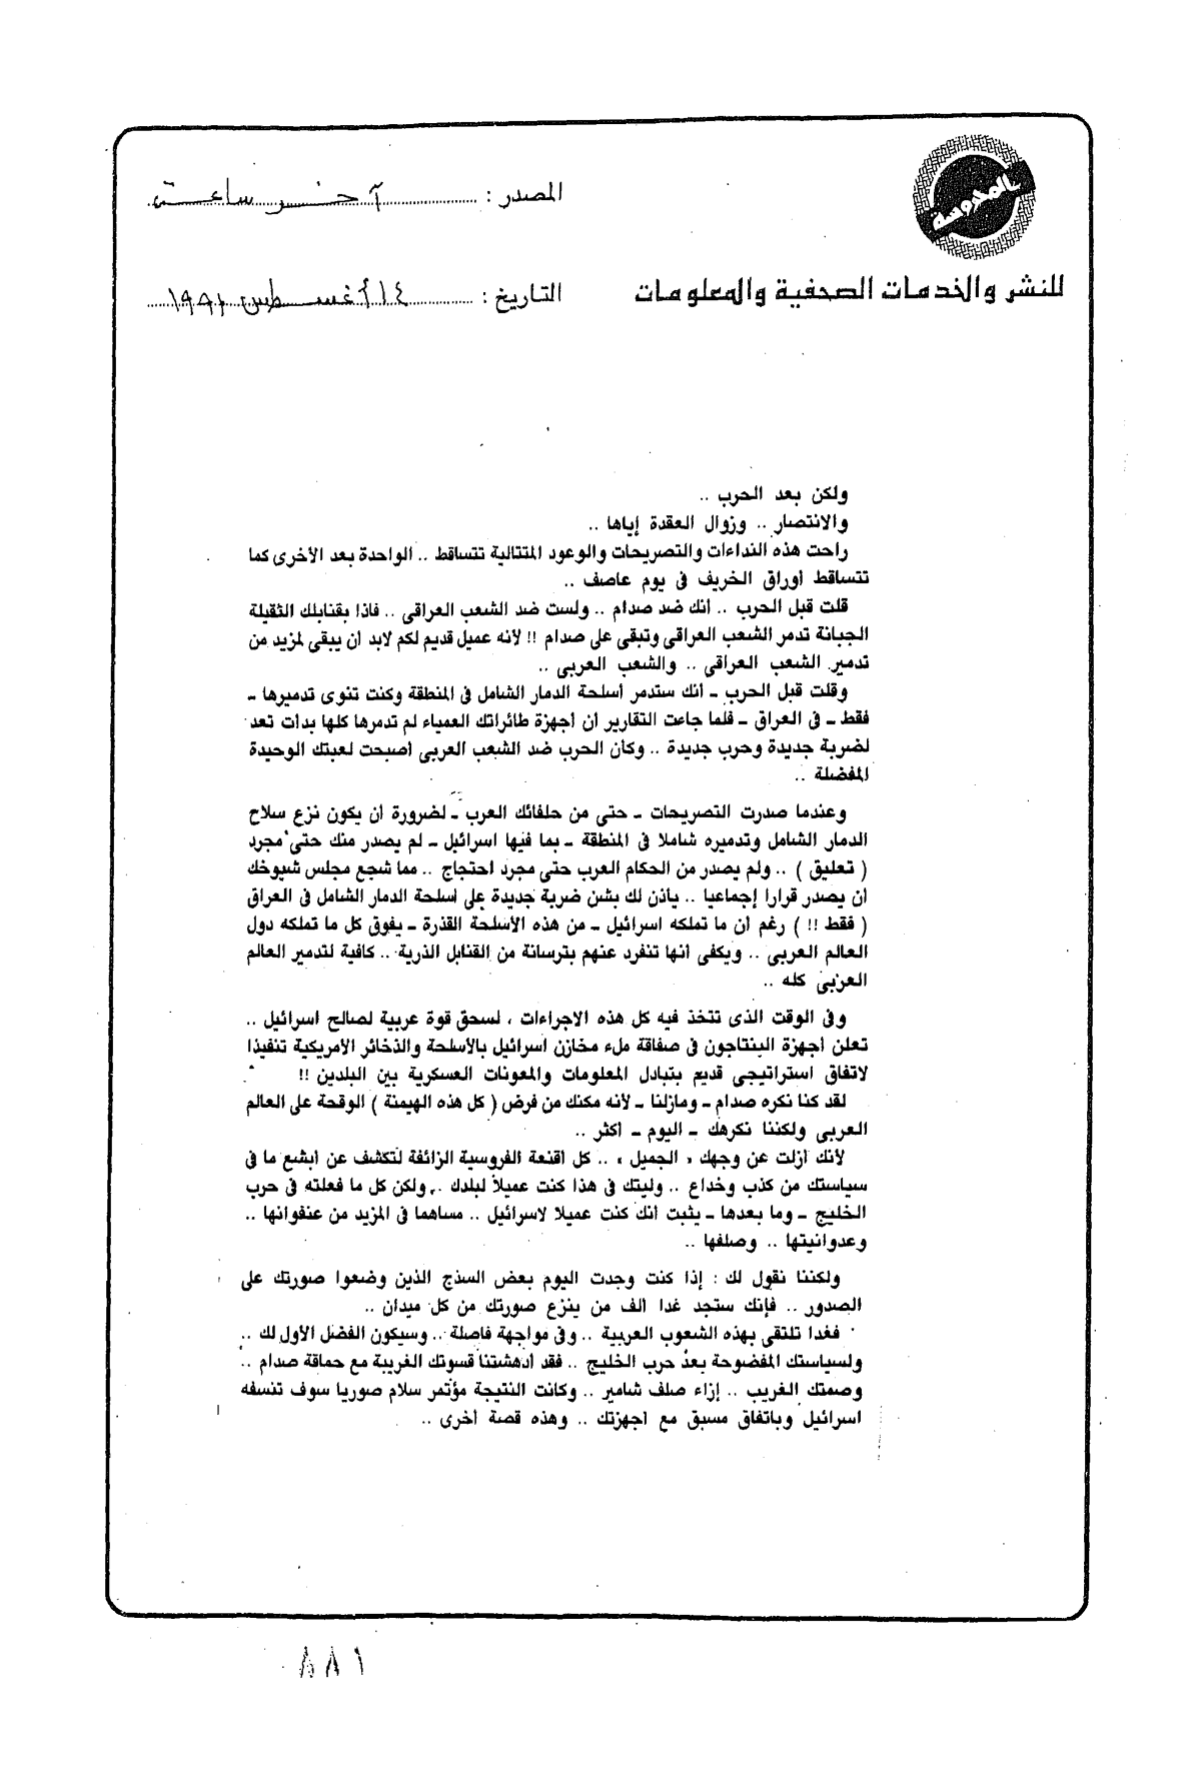 المحروسة
المصدر : آخر ساعة
للنشر والخدمات الصحفية والمعلومات
التاريخ : ١٤ أغسطس ١٩٩١
ولكن بعد الحرب ..
والانتصار .. وزوال العقدة إياها ..
راحت هذه النداءات والتصريحات والوعود المتتالية تتساقط .. الواحدة بعد الأخرى كما
تتساقط أوراق الخريف فى يوم عاصف ..
قلت قبل الحرب .. أنك ضد صدام .. ولست ضد الشعب العراقى .. فاذا بقنابلك الثقيلة
الجبانة تدمر الشعب العراقى وتبقى على صدام !! لأنه عميل قديم لكم لابد أن يبقى لمزيد من
تدمير الشعب العراقى .. والشعب العربى ..
وقلت قبل الحرب ـ أنك ستدمر أسلحة الدمار الشامل فى المنطقة وكنت تنوى تدميرها ـ
فقط ـ فى العراق ـ فلما جاءت التقارير أن أجهزة طائراتك العمياء لم تدمرها كلها بدأت تعد
لضربة جديدة وحرب جديدة .. وكأن الحرب ضد الشعب العربى أصبحت لعبتك الوحيدة
المفضلة ..
وعندما صدرت التصريحات ـ حتى من حلفائك العرب ـ لضرورة أن يكون نزع سلاح
الدمار الشامل وتدميره شاملا فى المنطقة ـ بما فيها اسرائيل ـ لم يصدر منك حتى مجرد
( تعليق ) .. ولم يصدر من الحكام العرب حتى مجرد احتجاج .. مما شجع مجلس شيوخك
أن يصدر قرارا إجماعيا .. يأذن لك بشن ضربة جديدة على أسلحة الدمار الشامل فى العراق
( فقط !! ) رغم أن ما تملكه اسرائيل ـ من هذه الأسلحة القذرة ـ يفوق كل ما تملكه دول
العالم العربى .. ويكفى أنها تنفرد عنهم بترسانة من القنابل الذرية .. كافية لتدمير العالم
العربى كله ..
وفى الوقت الذى تتخذ فيه كل هذه الاجراءات ، لسحق قوة عربية لصالح اسرائيل ..
تعلن أجهزة البنتاجون فى صفاقة ملء مخازن اسرائيل بالأسلحة والذخائر الأمريكية تنفيذا
لاتفاق استراتيجى قديم بتبادل المعلومات والمعونات العسكرية بين البلدين !!
لقد كنا نكره صدام ـ ومازلنا ـ لأنه مكنك من فرض ( كل هذه الهيمنة ) الوقحة على العالم
العربى ولكننا نكرهك ـ اليوم ـ أكثر ..
لأنك أزلت عن وجهك « الجميل » .. كل أقنعة الفروسية الزائفة لتكشف عن أبشع ما فى
سياستك من كذب وخداع .. وليتك فى هذا كنت عميلاً لبلدك .. ولكن كل ما فعلته فى حرب
الخليج ـ وما بعدها ـ يثبت أنك كنت عميلا لاسرائيل .. مساهما فى المزيد من عنفوانها ..
وعدوانيتها .. وصلفها ..
ولكننا نقول لك : إذا كنت وجدت اليوم بعض السذج الذين وضعوا صورتك على
الصدور .. فإنك ستجد غدا ألف من ينزع صورتك من كل ميدان ..
فغدا تلتقى بهذه الشعوب العربية .. وفى مواجهة فاصلة .. وسيكون الفضل الأول لك ..
ولسياستك المفضوحة بعد حرب الخليج .. فقد أدهشتنا قسوتك الغريبة مع حماقة صدام ..
وصمتك الغريب .. إزاء صلف شامير .. وكانت النتيجة مؤتمر سلام صوريا سوف تنسفه
اسرائيل وباتفاق مسبق مع أجهزتك .. وهذه قصة أخرى ..
١٨٨